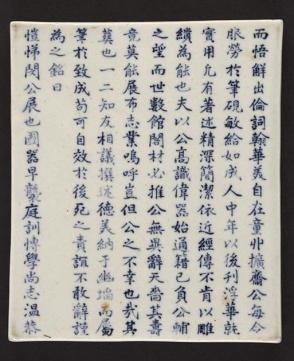 而悟鮮出倫詞翰華美自在童丱擴齋公每令
服勞於筆硯敏給如成人中年以後刋浮華乾
實用允有著述精深簡潔依近經傳不肯以雕
繢為能也夫以公高識偉器始通籍已負公輔
之望而世數館閣材必推公無異辭天嗇其壽
竟莫能展布志業嗚呼豈但公之不幸也哉其
葬也一二知友相議撰述德美納于幽堨而倫
筆於致成苟可自效於後死之責誼不敢辭謹
為之銘曰
愷悌閔公展也國器早襲庭訓博學尚志溫恭